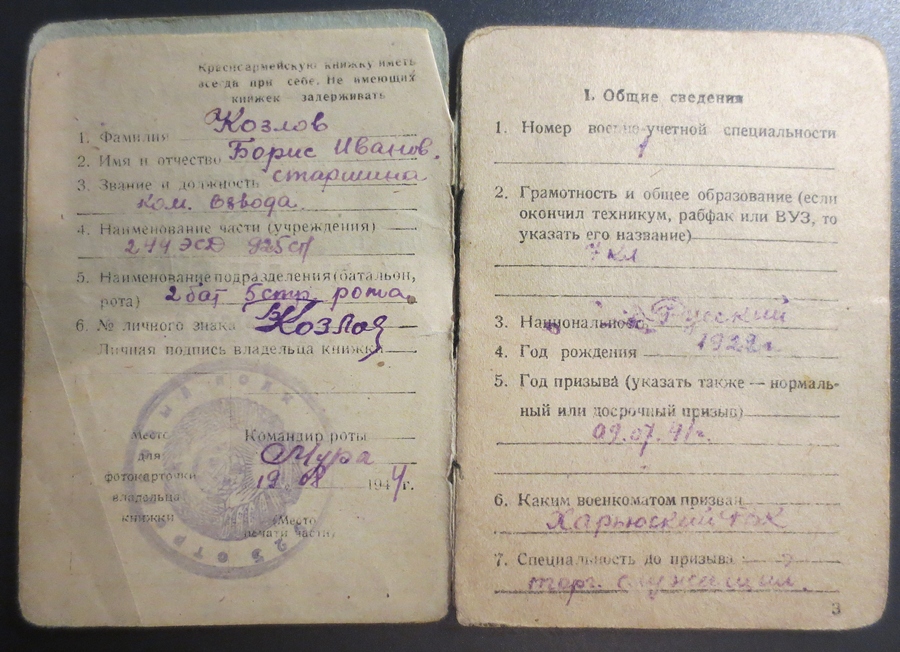 Красноармейскую книжку иметь
всегда при себе. Не имеющих
книжек — задерживать
1. Фамилия Козлов
2. Имя и отчество Борис Иванов.
3. Звание и должность старшина
ком. взвода
4. Наименование части (учреждения)
925сп
5. Наименование подразделения (батальон,
рота) 2 бат 5 стр рота
6. № личного знака Козлов
Личная подпись владельца книжки
Место
для
фотокарточки
владельца
книжки
Командир роты
Мура
19 08 1944 г.
(Место
печати части)
I. Общие сведения
1. Номер военно-учетной специальности
1
2. Грамотность и общее образование (если
окончил техникум, рабфак или ВУЗ, то
указать его название)
7 кл
3. Национальность Русский
4. Год рождения 1922 г.
5. Год призыва (указать также — нормаль-
ный или досрочный призыв)
09.07.41г.
6. Каким военкоматом призван
7. Специальность до призыва
торг. служащий.
3